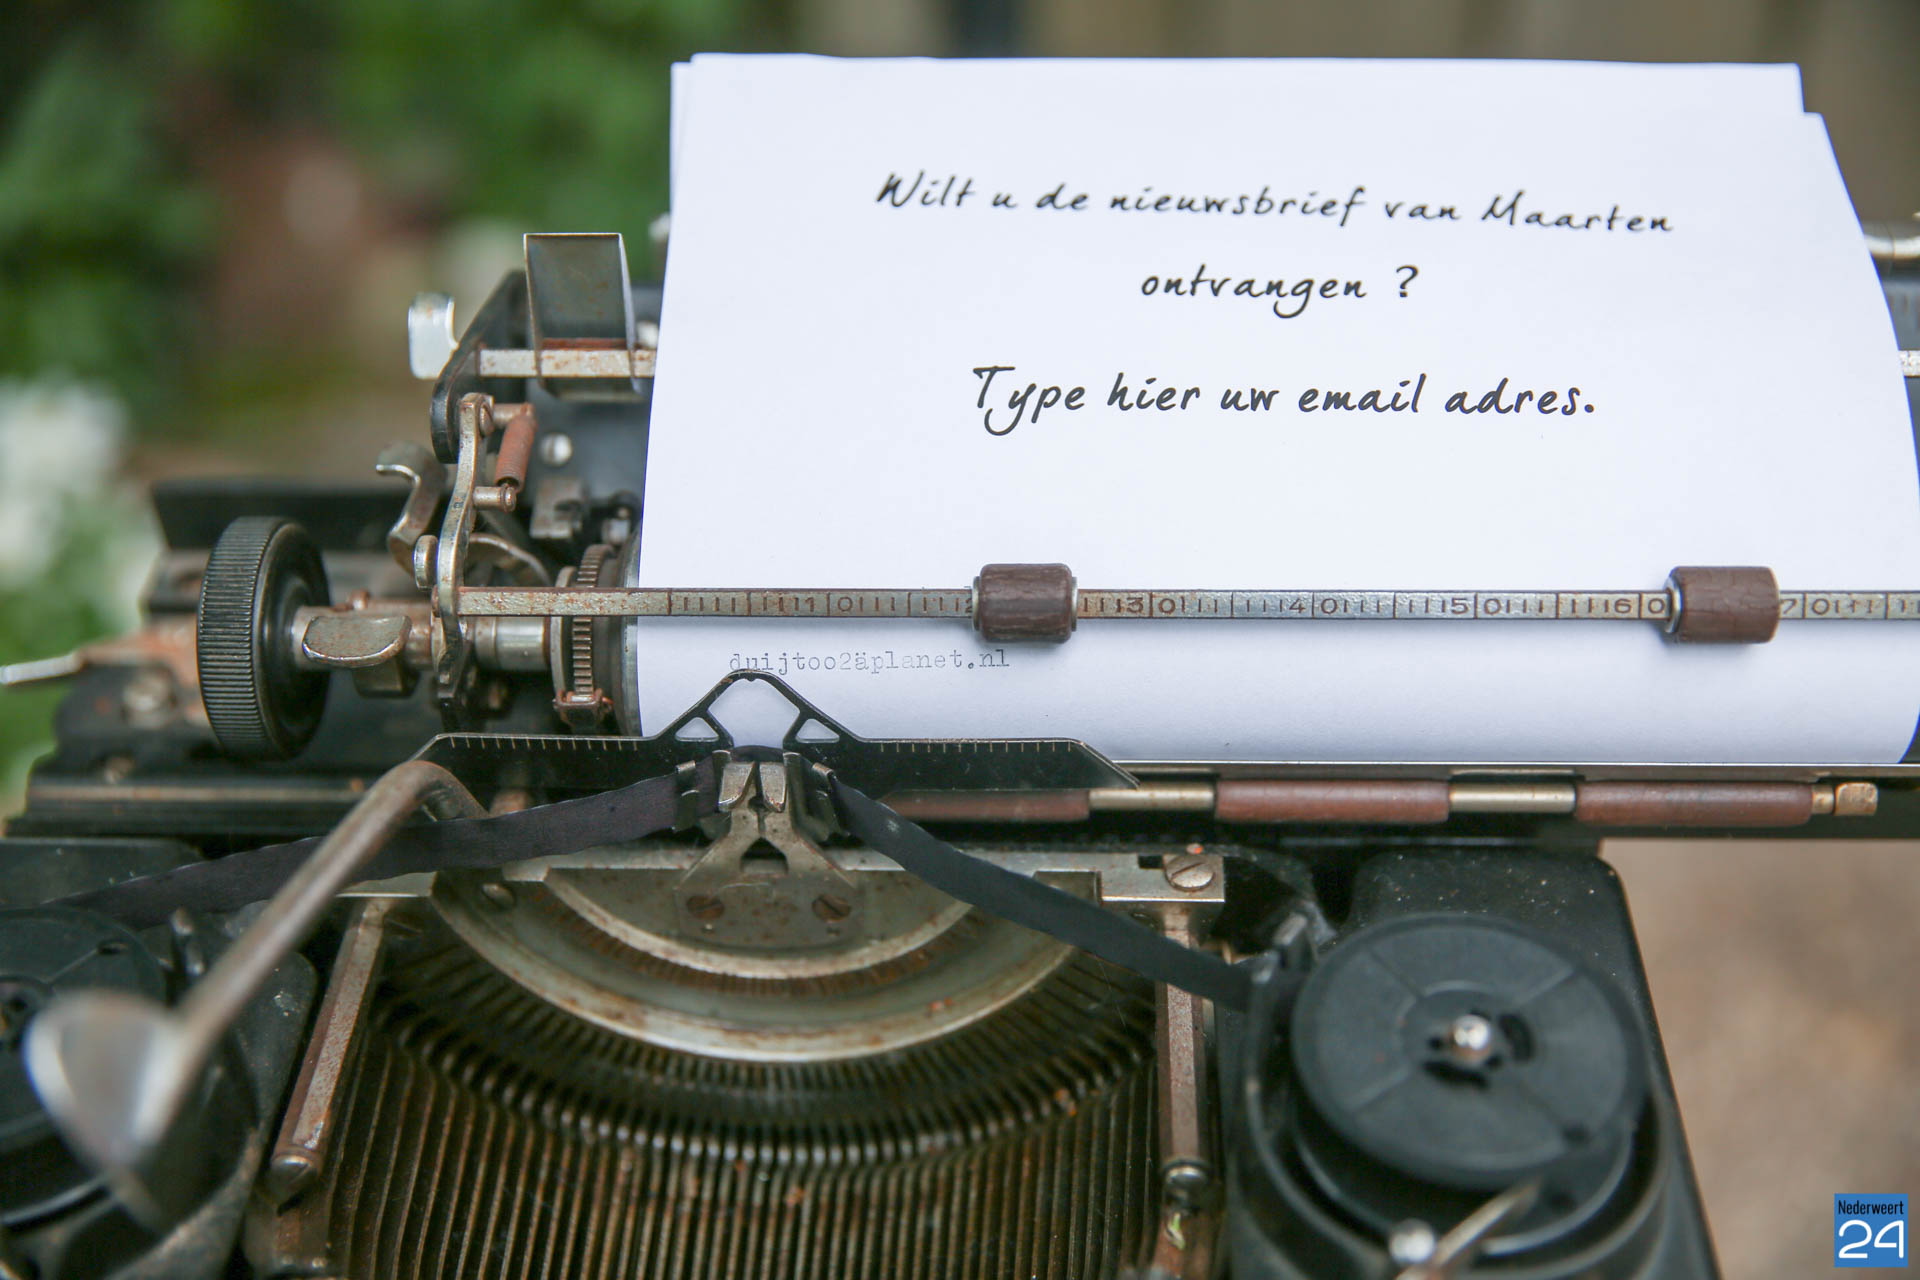 Wilt u de nieuwsbrief van Maarten
ontvangen ?
Type hier uw email adres.
10 20 30 40 50 60 70
duijtoo2äplanet.nl
Nederweert
24